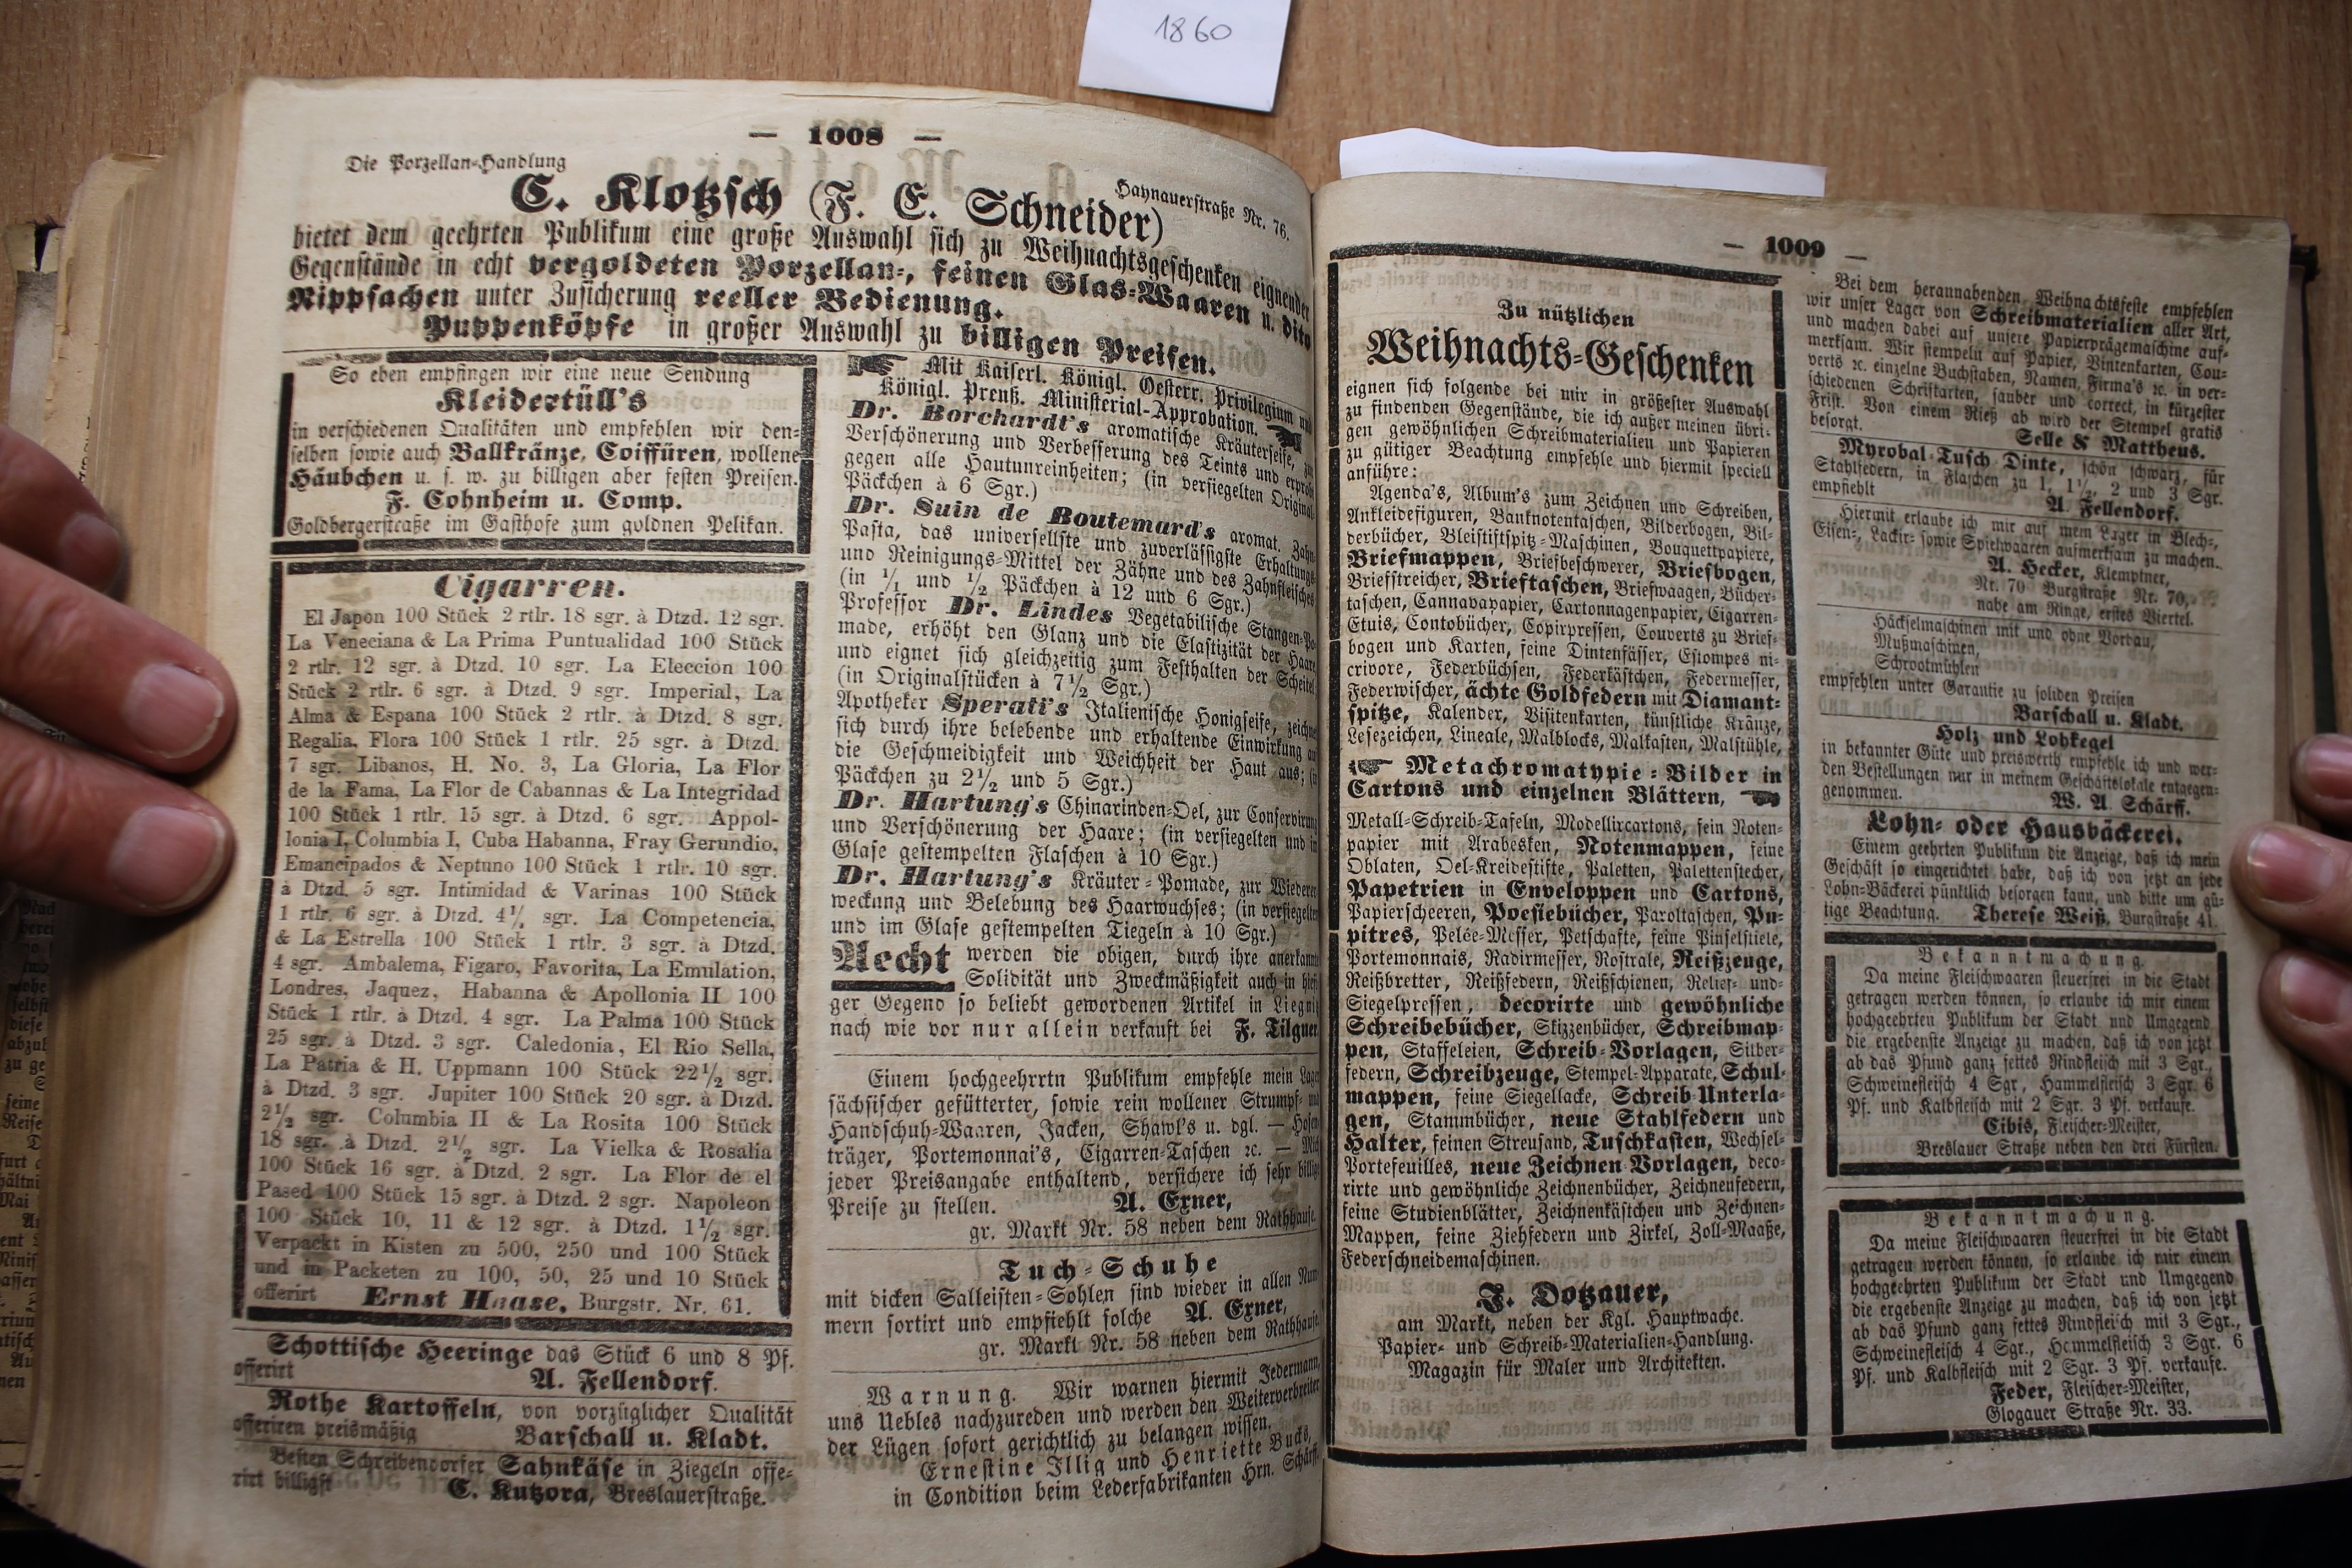 1860
— 1008 —
Die Porzellan-Handlung
Haynauerstraße Nr. 76.
C. Klotzsch (F. E. Schneider)
bietet dem geehrten Publikum eine große Auswahl sich zu Weihnachtsgeschenken eignender
Gegenstände in echt vergoldeten Porzellan-, feinen Glas-Waaren u. dito
Nippsachen unter Zusicherung reeller Bedienung.
Puppenköpfe in großer Auswahl zu billigen Preisen.
So eben empfingen wir eine neue Sendung
Kleidertüll's
in verschiedenen Qualitäten und empfehlen wir den-
selben sowie auch Ballkränze, Coiffüren, wollene
Häubchen u. s. w. zu billigen aber festen Preisen.
F. Cohnheim u. Comp.
Goldbergerstraße im Gasthofe zum goldnen Pelikan.
Cigarren.
El Japon 100 Stück 2 rtlr. 18 sgr. à Dtzd. 12 sgr.
La Veneciana & La Prima Puntualidad 100 Stück
2 rtlr. 12 sgr. à Dtzd. 10 sgr. La Eleccion 100
Stück 2 rtlr. 6 sgr. à Dtzd. 9 sgr. Imperial, La
Alma & Espana 100 Stück 2 rtlr. à Dtzd. 8 sgr.
Regalia, Flora 100 Stück 1 rtlr. 25 sgr. à Dtzd.
7 sgr. Libanos, H. No. 3, La Gloria, La Flor
de la Fama, La Flor de Cabannas & La Integridad
100 Stück 1 rtlr. 15 sgr. à Dtzd. 6 sgr. Appol-
lonia I, Columbia I, Cuba Habanna, Fray Gerundio,
Emancipados & Neptuno 100 Stück 1 rtlr. 10 sgr.
à Dtzd. 5 sgr. Intimidad & Varinas 100 Stück
1 rtlr. 6 sgr. à Dtzd. 4½ sgr. La Competencia,
& La Estrella 100 Stück 1 rtlr. 3 sgr. à Dtzd.
4 sgr. Ambalema, Figaro, Favorita, La Emulation,
Londres, Jaquez, Habanna & Apollonia II 100
Stück 1 rtlr. à Dtzd. 4 sgr. La Palma 100 Stück
25 sgr. à Dtzd. 3 sgr. Caledonia, El Rio Sella,
La Patria & H. Uppmann 100 Stück 22½ sgr.
à Dtzd. 3 sgr. Jupiter 100 Stück 20 sgr. à Dtzd.
2½ sgr. Columbia II & La Rosita 100 Stück
18 sgr. à Dtzd. 2½ sgr. La Vielka & Rosalia
100 Stück 16 sgr. à Dtzd. 2 sgr. La Flor de el
Pased 100 Stück 15 sgr. à Dtzd. 2 sgr. Napoleon
100 Stück 10, 11 & 12 sgr. à Dtzd. 1½ sgr.
Verpackt in Kisten zu 500, 250 und 100 Stück
und in Packeten zu 100, 50, 25 und 10 Stück
offerirt Ernst Haase, Burgstr. Nr. 61.
Schottische Heeringe das Stück 6 und 8 Pf.
offerirt A. Fellendorf.
Rothe Kartoffeln, von vorzüglicher Qualität
offeriren preismäßig Barschall u. Kladt.
Besten Schreibendorfer Sahnkäse in Ziegeln offe-
rirt billigst C. Kutzora, Breslauerstraße.
Mit Kaiserl. Königl. Oesterr. Privilegium und
Königl. Preuß. Ministerial-Approbation.
Dr. Borchardt's aromatische Kräuterseife, zur
Verschönerung und Verbesserung des Teints und erprobt
gegen alle Hautunreinheiten; (in versiegelten Original-
Päckchen à 6 Sgr.)
Dr. Suin de Boutemard's aromat. Zahn-
Pasta, das universellste und zuverlässigste Erhaltungs-
und Reinigungs-Mittel der Zähne und des Zahnfleisches
(in 1/1 und ½ Päckchen à 12 und 6 Sgr.)
Professor Dr. Lindes Vegetabilische Stangen-Po-
made, erhöht den Glanz und die Elastizität der Haare
und eignet sich gleichzeitig zum Festhalten der Scheitel
(in Originalstücken à 7½ Sgr.)
Apotheker Sperati's Italienische Honigseife, zeichnet
sich durch ihre belebende und erhaltende Einwirkung auf
die Geschmeidigkeit und Weichheit der Haut aus; (in
Päckchen zu 2½ und 5 Sgr.)
Dr. Hartung's Chinarinden-Oel, zur Conservirung
und Verschönerung der Haare; (in versiegelten und im
Glase gestempelten Flaschen à 10 Sgr.)
Dr. Hartung's Kräuter-Pomade, zur Wiederer-
weckung und Belebung des Haarwuchses; (in versiegelten
und im Glase gestempelten Tiegeln à 10 Sgr.)
Aecht werden die obigen, durch ihre anerkannte
Solidität und Zweckmäßigkeit auch in hiesi-
ger Gegend so beliebt gewordenen Artikel in Liegnitz
nach wie vor nur allein verkauft bei F. Tilgner
Einem hochgeehrrtn Publikum empfehle mein Lager
sächsischer gefütterter, sowie rein wollener Strumpf- und
Handschuh-Waaren, Jacken, Shawl's u. dgl. — Hosen-
träger, Portemonnai's, Cigarren-Taschen ꝛc. — Mich
jeder Preisangabe enthaltend, versichere ich sehr billige
Preise zu stellen. A. Exner,
gr. Markt Nr. 58 neben dem Rathhause.
Tuch-Schuhe
mit dicken Salleisten-Sohlen sind wieder in allen Num-
mern sortirt und empfiehlt solche A. Exner,
gr. Markt Nr. 58 neben dem Rathhause.
Warnung. Wir warnen hiermit Jedermann,
uns Uebles nachzureden und werden den Weiterverbreiter
der Lügen sofort gerichtlich zu belangen wissen.
Ernestine Illig und Henriette Bucks,
in Condition beim Lederfabrikanten Hrn. Schärff.
— 1009 —
Zu nützlichen
Weihnachts-Geschenken
eignen sich folgende bei mir in größester Auswahl
zu findenden Gegenstände, die ich außer meinen übri-
gen gewöhnlichen Schreibmaterialien und Papieren
zu gütiger Beachtung empfehle und hiermit speciell
anführe:
Agenda's, Album's zum Zeichnen und Schreiben,
Ankleidefiguren, Banknotentaschen, Bilderbogen, Bil-
derbücher, Bleistiftspitz-Maschinen, Bouquettpapiere,
Briefmappen, Briefbeschwerer, Briefbogen,
Briefstreicher, Brieftaschen, Briefwaagen, Bücher-
taschen, Cannavapapier, Cartonnagenpapier, Cigarren-
Etuis, Contobücher, Copirpressen, Couverts zu Brief-
bogen und Karten, feine Dintenfässer, Estompes ni-
crivore, Federbüchsen, Federkästchen, Federmesser,
Federwischer, ächte Goldfedern mit Diamant-
spitze, Kalender, Visitenkarten, künstliche Kränze,
Lesezeichen, Lineale, Malblocks, Malkasten, Malstühle,
Metachromatypie-Bilder in
Cartons und einzelnen Blättern,
Metall-Schreib-Tafeln, Modellircartons, fein Noten-
papier mit Arabesken, Notenmappen, feine
Oblaten, Oel-Kreidestifte, Paletten, Palettenstecher,
Papetrien in Enveloppen und Cartons,
Papierscheeren, Poesiebücher, Paroltaschen, Pu-
pitres, Pelée-Messer, Petschafte, feine Pinselstiele,
Portemonnais, Radirmesser, Rostrale, Reißzeuge,
Reißbretter, Reißfedern, Reißschienen, Relief- und-
Siegelpressen, decorirte und gewöhnliche
Schreibebücher, Skizzenbücher, Schreibmap-
pen, Staffeleien, Schreib-Vorlagen, Silber-
federn, Schreibzeuge, Stempel-Apparate, Schul-
mappen, feine Siegellacke, Schreib-Unterla-
gen, Stammbücher, neue Stahlfedern und
Halter, feinen Streusand, Tuschkasten, Wechsel-
Portefeuilles, neue Zeichnen-Vorlagen, deco-
rirte und gewöhnliche Zeichnenbücher, Zeichnenfedern,
feine Studienblätter, Zeichnenkästchen und Zeichnen-
Mappen, feine Ziehfedern und Zirkel, Zoll-Maaße,
Federschneidemaschinen.
J. Dotzauer,
am Markt, neben der Kgl. Hauptwache.
Papier- und Schreib-Materialien-Handlung.
Magazin für Maler und Architekten.
Bei dem herannahenden Weihnachtsfeste empfehlen
wir unser Lager von Schreibmaterialien aller Art,
und machen dabei auf unsere Papierprägemaschine auf-
merksam. Wir stempeln auf Papier, Vintenkarten, Cou-
verts ꝛc. einzelne Buchstaben, Namen, Firma's ꝛc. in ver-
schiedenen Schriftarten, sauber und correct, in kürzester
Frist. Von einem Rieß ab wird der Stempel gratis
besorgt. Selle & Mattheus.
Myrobal-Tusch-Dinte, schön schwarz, für
Stahlfedern, in Flaschen zu 1, 1½, 2 und 3 Sgr.
empfiehlt A. Fellendorf.
Hiermit erlaube ich mir auf mein Lager in Blech-,
Eisen-, Lackir- sowie Spielwaaren aufmerksam zu machen.
A. Hecker, Klemptner,
Nr. 70 Burgstraße Nr. 70,
nahe am Ringe, erstes Viertel.
Häckselmaschinen mit und ohne Vorbau,
Mußmaschinen,
Schrootmühlen
empfehlen unter Garantie zu soliden Preisen
Barschall u. Kladt.
Holz und Lohkegel
in bekannter Güte und preiswerth empfehle ich und wer-
den Bestellungen nur in meinem Geschäftslokale entgegen-
genommen. W. A. Schärff.
Lohn- oder Hausbäckerei.
Einem geehrten Publikum die Anzeige, daß ich mein
Geschäft so eingerichtet habe, daß ich von jetzt an jede
Lohn-Bäckerei pünktlich besorgen kann, und bitte um gü-
tige Beachtung. Therese Weiß, Burgstraße 41.
Bekanntmachung.
Da meine Fleischwaaren steuerfrei in die Stadt
getragen werden können, so erlaube ich mir einem
hochgeehrten Publikum der Stadt und Umgegend
die ergebenste Anzeige zu machen, daß ich von jetzt
ab das Pfund ganz fettes Rindfleisch mit 3 Sgr.,
Schweinefleisch 4 Sgr., Hammelfleisch 3 Sgr. 6
Pf. und Kalbfleisch mit 2 Sgr. 3 Pf. verkaufe.
Cibis, Fleischer-Meister,
Breslauer Straße neben den drei Fürsten.
Bekanntmachung.
Da meine Fleischwaaren steuerfrei in die Stadt
getragen werden können, so erlaube ich mir einem
hochgeehrten Publikum der Stadt und Umgegend
die ergebenste Anzeige zu machen, daß ich von jetzt
ab das Pfund ganz fettes Rindfleisch mit 3 Sgr.,
Schweinefleisch 4 Sgr., Hammelfleisch 3 Sgr. 6
Pf. und Kalbfleisch mit 2 Sgr. 3 Pf. verkaufe.
Feder, Fleischer-Meister,
Glogauer Straße Nr. 33.